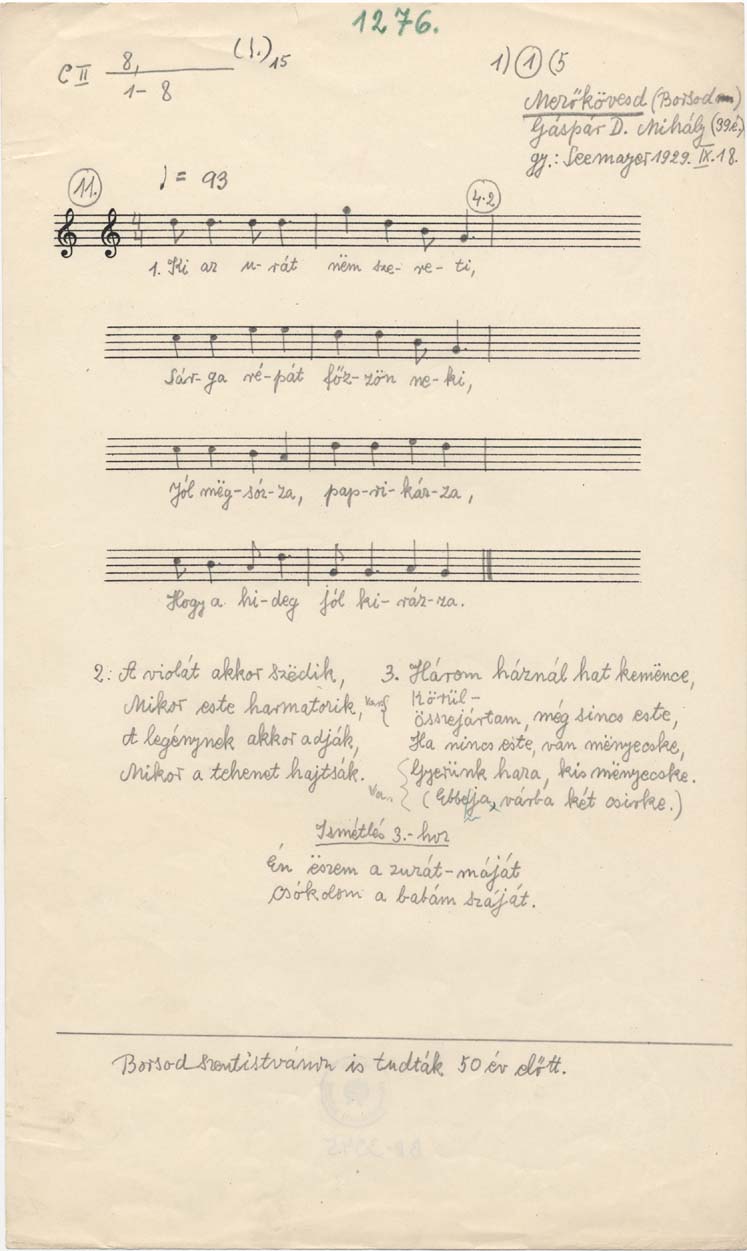 1276.
C II 8, (1.) 15
1- 8
1) 1 (5
Mezőkövesd (Borsod)
Gáspár D. Mihály (39é.)
gy.: Seemayer 1929. IX. 18.
11. ♩ = 93
4·2
4/4
1. Ki az u-rát nëm sze-re-ti,
Sár-ga ré-pát főz-zön ne-ki,
Jól mëg-sóz-za, pap-ri-káz-za,
Hogy a hi-deg jól ki-ráz-za.
2: A violát akkor szëdik,
Mikor este harmatozik,
A legénynek akkor adják,
Mikor a tehenet hajtsák.
3. Három háznál hat kemënce,
Körül-
Összejártam, még sincs este,
Ha nincs este, van mënyecske,
Gyerünk haza, kis mënyecske.
Va.
(várba két csirke.)
Ismétlés 3.-hoz
Én ëszem a zuzát-máját
Csókolom a babám száját.
Borsod Szentistvánon is tudták 50 év előtt.